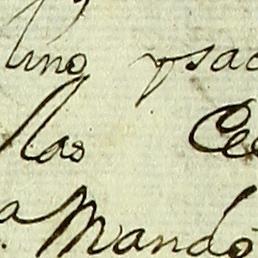 lino ysac
llas Ce
a Mandó